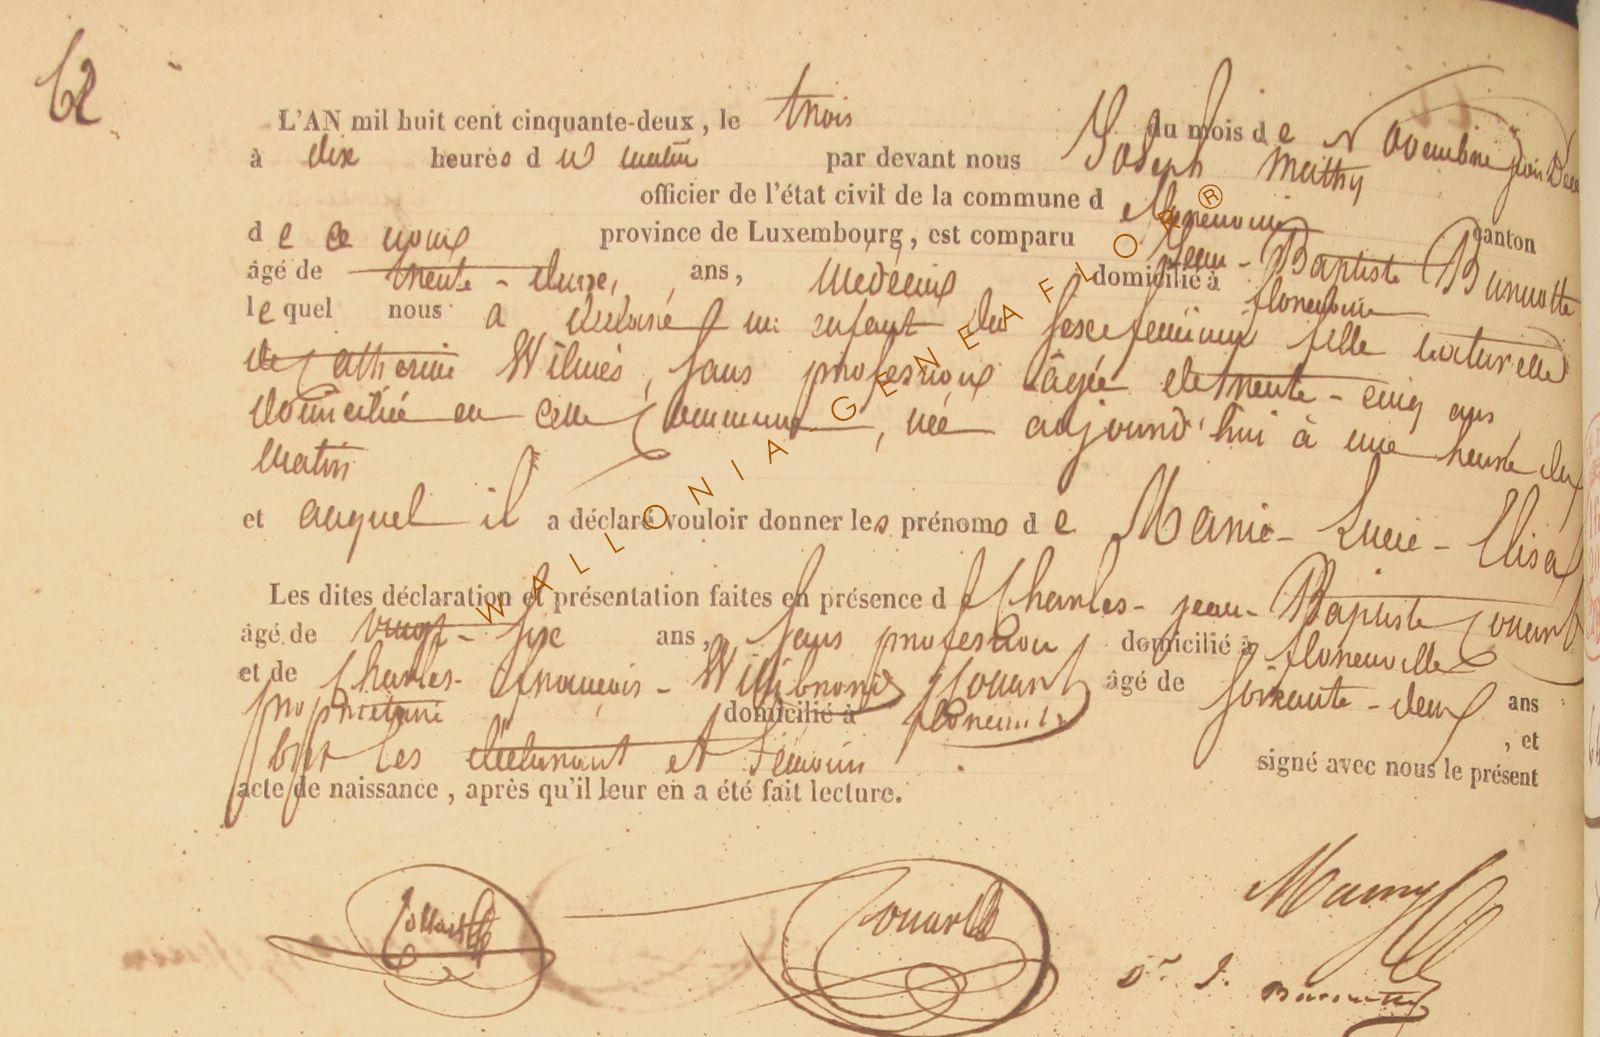 62
L'AN mil huit cent cinquante-deux, le trois du mois de Novembre
à dix heures du matin par devant nous Joseph Mathy
officier de l'état civil de la commune d Florenville canton
de ce nom province de Luxembourg, est comparu Jean-Baptiste
âgé de trente- ans, Médecin domicilié à florenville
lequel nous a déclaré un enfant du sexe féminin fille naturelle
de Catherine Wilmès, sans profession âgée de trente-cinq ans
domiciliée en cette Commune, née aujourd'hui à une heure du
matin
et auquel il a déclaré vouloir donner les prénoms de Marie-Lucie-Elisa
Les dites déclaration et présentation faites en présence de Charles-jean-Baptiste
âgé de vingt-six ans, sans profession domicilié à florenville
et de Charles-françois-Willibrord âgé de soixante-deux ans
propriétaire domicilié à florenville, et
ont les déclarant et témoins signé avec nous le présent
acte de naissance, après qu'il leur en a été fait lecture.
Dr. J.
WALLONIA-GENEAFLOR®